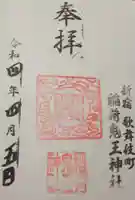 新宿歌舞伎町
稲荷鬼王神社
奉拝
令和四年四月五日